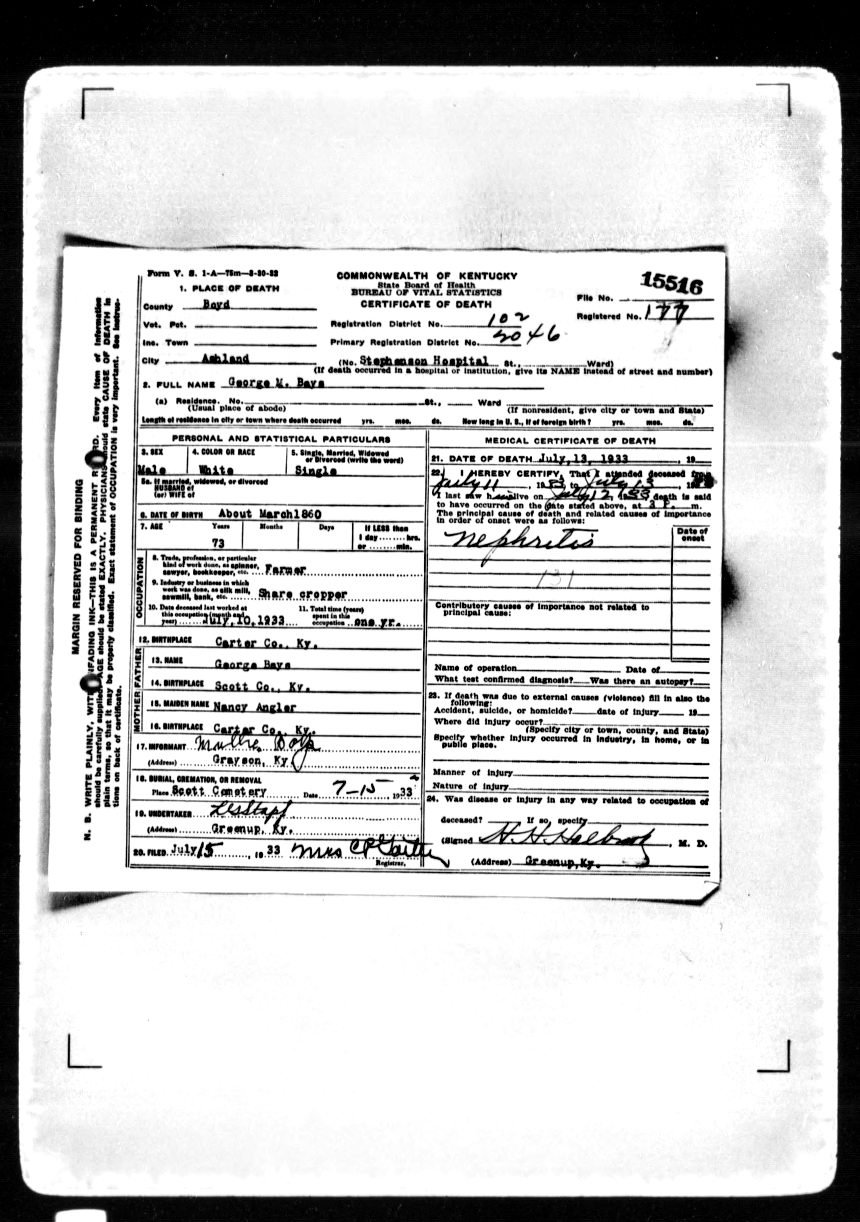 Form V. S. 1-A—75m—8-30-32
COMMONWEALTH OF KENTUCKY
State Board of Health
BUREAU OF VITAL STATISTICS
CERTIFICATE OF DEATH
15516
File No.
Registered No. 177
1. PLACE OF DEATH
County Boyd
Vot. Pct.
Inc. Town
City Ashland
Registration District No. 102
Primary Registration District No. 2046
(No. Stephenson Hospital St., Ward)
(If death occurred in a hospital or institution, give its NAME instead of street and number)
2. FULL NAME George M. Bays
(a) Residence. No. St., Ward
(Usual place of abode) (If nonresident, give city or town and State)
Length of residence in city or town where death occurred yrs. mos. ds. How long in U. S., if of foreign birth? yrs. mos. ds.
PERSONAL AND STATISTICAL PARTICULARS
3. SEX 4. COLOR OR RACE 5. Single, Married, Widowed
or Divorced (write the word)
Male White Single
5a. If married, widowed, or divorced
HUSBAND of
(or) WIFE of
6. DATE OF BIRTH About March 1860
7. AGE Years Months Days If LESS than
1 day hrs.
or min.
73
OCCUPATION
8. Trade, profession, or particular
kind of work done, as spinner,
sawyer, bookkeeper, etc. Farmer
9. Industry or business in which
work was done, as silk mill,
sawmill, bank, etc. Share cropper
10. Date deceased last worked at
this occupation (month and
year) July, 10, 1933
11. Total time (years)
spent in this
occupation one yr.
12. BIRTHPLACE Carter Co., Ky.
FATHER
13. NAME George Bays
14. BIRTHPLACE Scott Co., Ky.
MOTHER
15. MAIDEN NAME Nancy Angler
16. BIRTHPLACE Carter Co., Ky.
17. INFORMANT
(Address) Grayson, Ky.
18. BURIAL, CREMATION, OR REMOVAL
Place Scott Cemetery Date 7-15 1933
19. UNDERTAKER
(Address) Greenup, Ky.
20. FILED July 15, 1933 Mrs
Registrar.
MEDICAL CERTIFICATE OF DEATH
21. DATE OF DEATH July, 13, 1933 19
22. I HEREBY CERTIFY, That I attended deceased from
July 11, 1933 to July 13, 19
I last saw h alive on July 12, 1933 death is said
to have occurred on the date stated above, at 3 P. m.
The principal cause of death and related causes of importance
in order of onset were as follows:
Date of
onset
Nephritis
131
Contributory causes of importance not related to
principal cause:
Name of operation Date of
What test confirmed diagnosis? Was there an autopsy?
23. If death was due to external causes (violence) fill in also the
following:
Accident, suicide, or homicide? date of injury 19
Where did injury occur?
(Specify city or town, county, and State)
Specify whether injury occurred in industry, in home, or in
public place.
Manner of injury
Nature of injury
24. Was disease or injury in any way related to occupation of
deceased? If so, specify
(Signed H. H. Holbrook, M. D.
(Address) Greenup, Ky.
MARGIN RESERVED FOR BINDING
N. B. WRITE PLAINLY, WITH UNFADING INK—THIS IS A PERMANENT RECORD. Every item of information
should be carefully supplied. AGE should be stated EXACTLY. PHYSICIANS should state CAUSE OF DEATH in
plain terms, so that it may be properly classified. Exact statement of OCCUPATION is very important. See instruc-
tions on back of certificate.